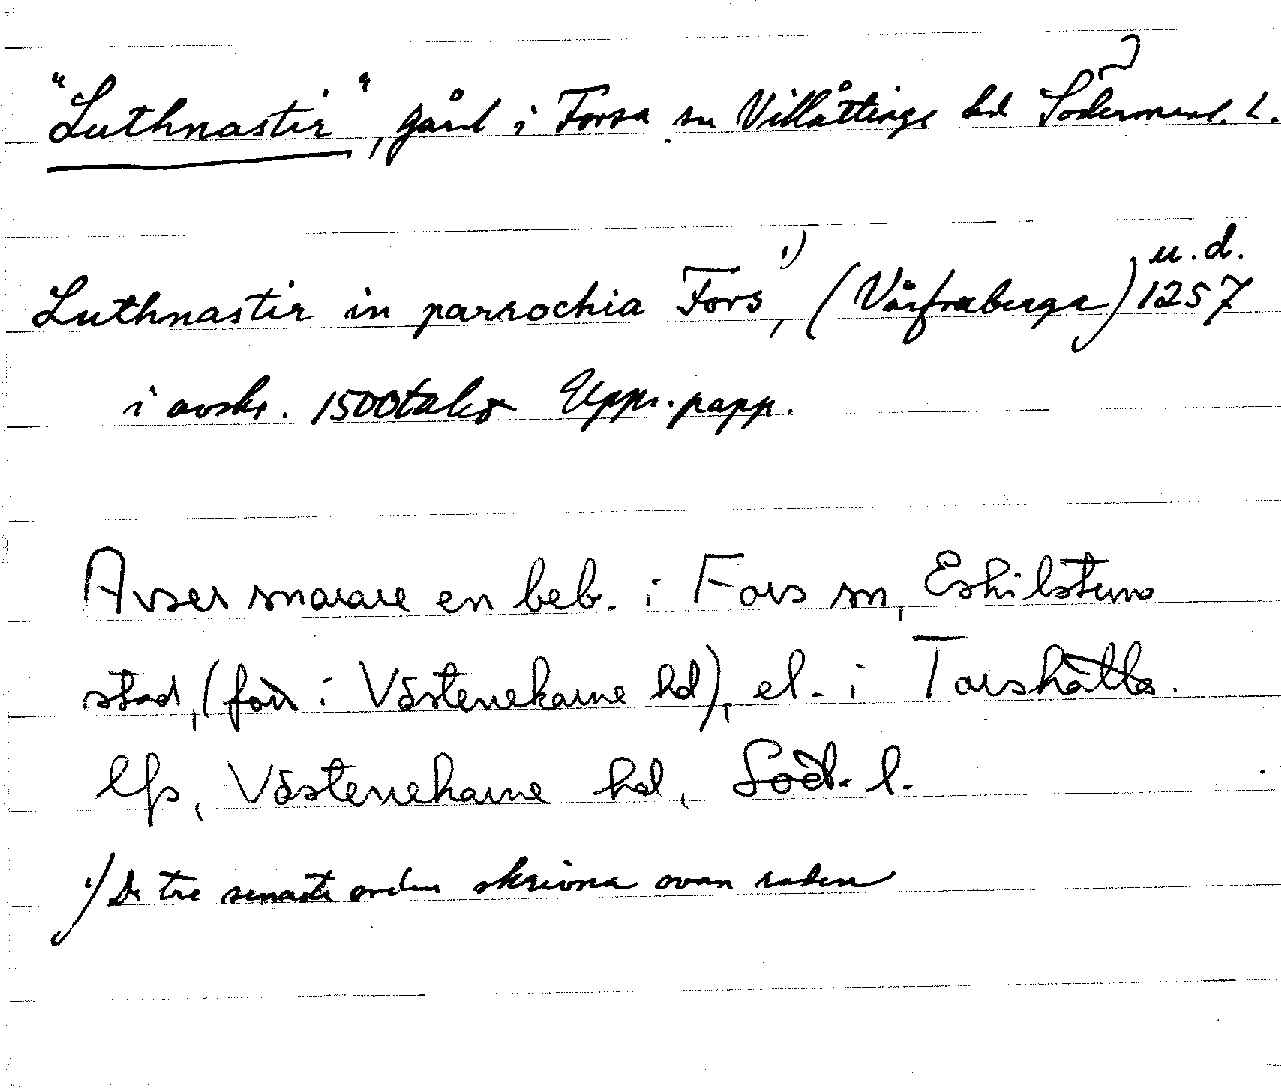 "Luthnastir", gård i Forsa sn Villåttinge hd Södermanl. l. ?
Luthnastir in parrochia Fors ¹), (Vårfruberga) u.d. 1257
i avskr. 1500talet Upps. papp.
Avser snarare en beb. i Fors sn, Eskilstuna
stad, (förr i Västerrekarne hd), el. i Torshälla
lfs, Västerrekarne hd, Söd. l.
¹) De tre senaste orden skrivna ovan raden